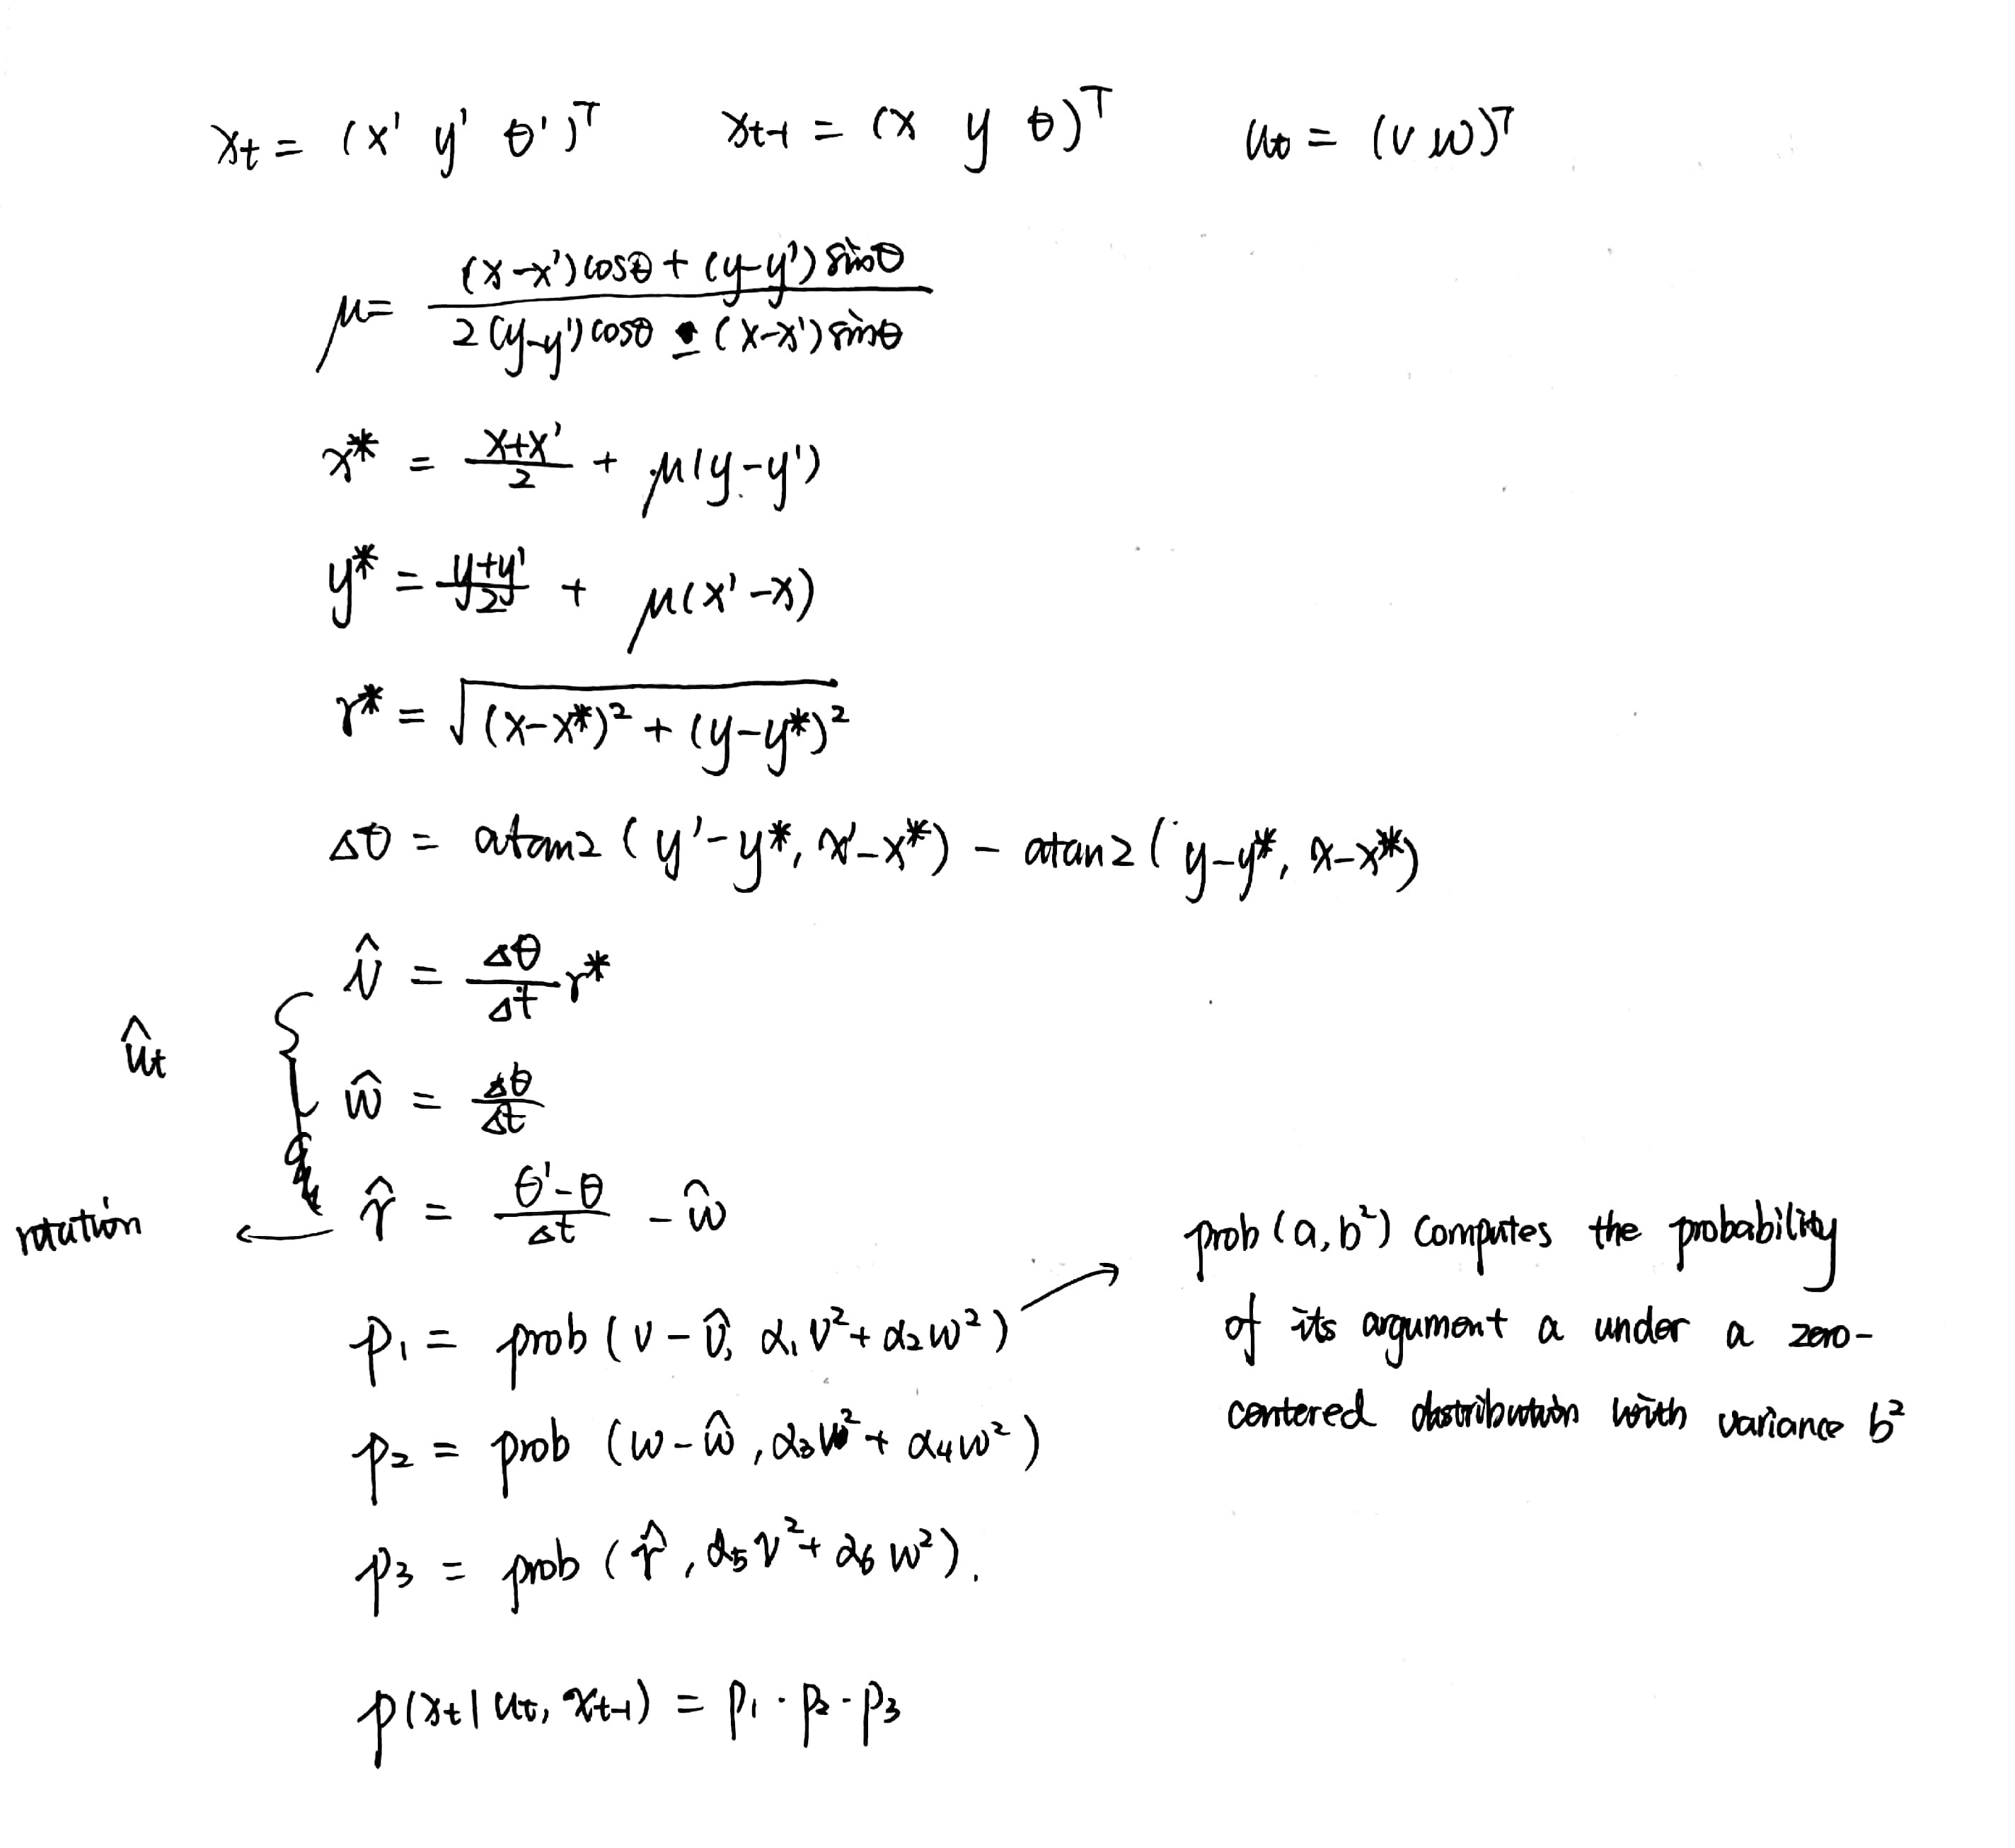 xt = (x' y' θ')ᵀ xt-1 = (x y θ)ᵀ ut = (v w)ᵀ
μ = ((x-x')cosθ + (y-y')sinθ) / (2(y-y')cosθ - (x-x')sinθ)
x* = (x+x')/2 + μ(y-y')
y* = (y+y')/2 + μ(x'-x)
r* = √((x-x*)² + (y-y*)²)
Δθ = atan2(y'-y*, x'-x*) - atan2(y-y*, x-x*)
v̂ = Δθ/Δt r*
ût
ŵ = Δθ/Δt
rotation ← r̂ = (θ'-θ)/Δt - ŵ
p₁ = prob(v-v̂, α₁v²+α₂w²) →
prob(a,b²) computes the probability
of its argument a under a zero-
centered distribution with variance b²
p₂ = prob (w-ŵ, α₃v²+α₄w²)
p₃ = prob (r̂, α₅v²+α₆w²).
p(xt|ut, xt-1) = p₁·p₂·p₃